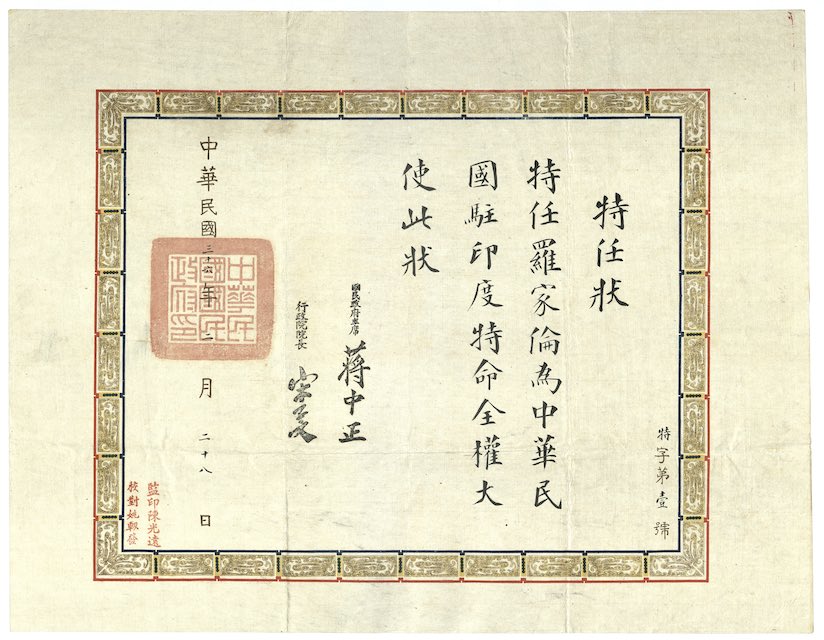 特字第壹號
特任狀
特任羅家倫為中華民
國駐印度特命全權大
使此狀
國民政府主席 蔣中正
行政院院長 宋子文
中華民國三十六年二月二十八日
中華民
國國民
政府印
監印陳光遠
校對姚發